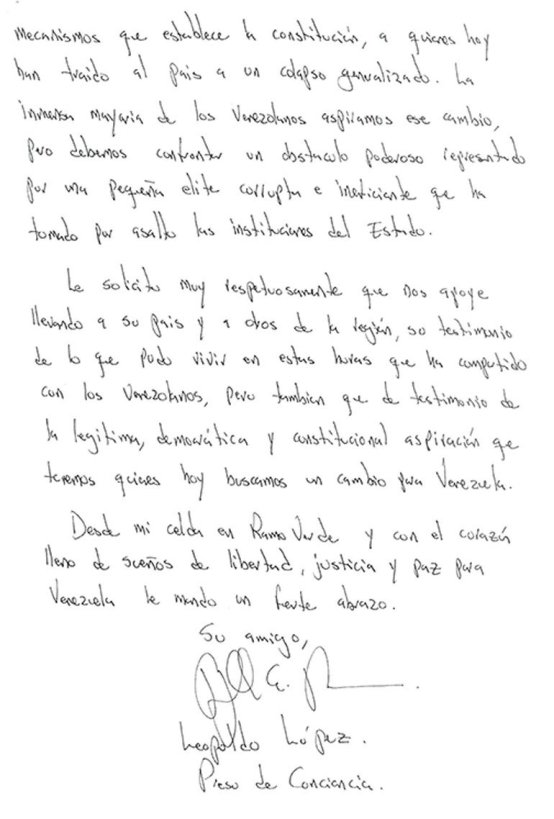 mecanismos que establece la constitución, a quienes hoy
han traido al pais a un colapso generalizado. La
inmensa mayoria de los Venezolanos aspiramos ese cambio,
pero debemos confrontar un obstaculo poderoso representado
por una pequeña elite corrupta e ineficiente que ha
tomado por asalto las instituciones del Estado.
Le solicito muy respetuosamente que nos apoye
llevando a su pais y a otros de la región, su testimonio
de lo que pudo vivir en estas horas que ha compartido
con los Venezolanos, pero tambien que de testimonio de
la legitima, democrática y constitucional aspiración que
tenemos quienes hoy buscamos un cambio para Venezuela.
Desde mi celda en Ramo Verde y con el corazón
lleno de sueños de libertad, justicia y paz para
Venezuela le mando un fuerte abrazo.
Su amigo,
Leopoldo López.
Preso de Conciencia.